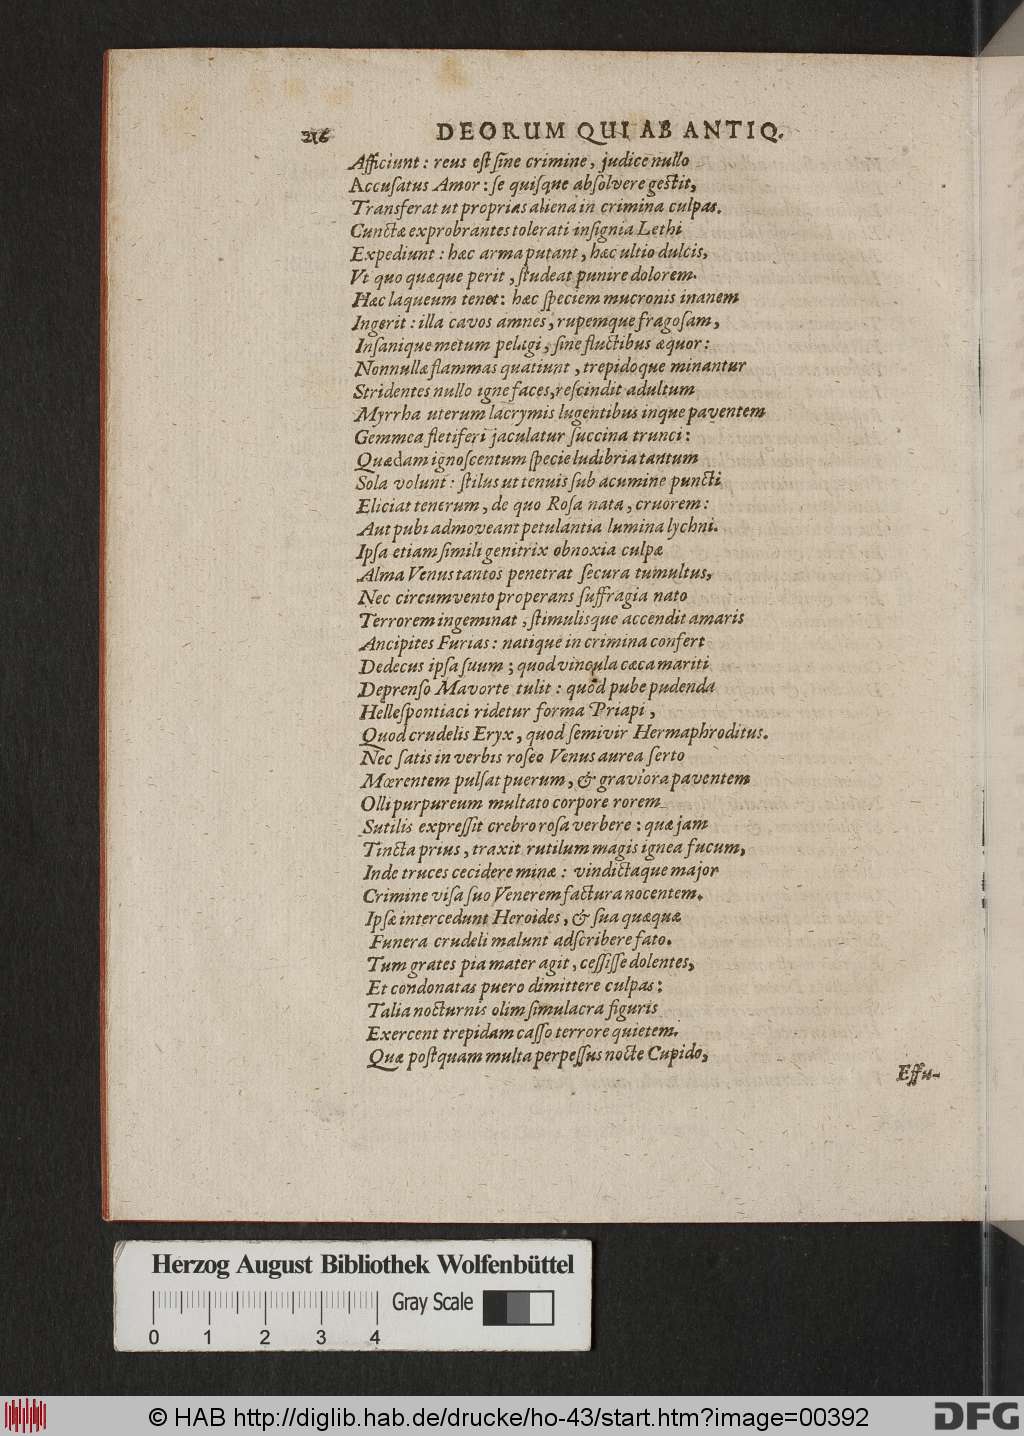 216 DEORUM QUI AB ANTIQ.
Afficiunt: reus eſt ſine crimine, judice nullo
Accuſatus Amor: ſe quiſque abſolvere geſtit,
Transferat ut proprias aliena in crimina culpas.
Cunctæ exprobrantes tolerati inſignia Lethi
Expediunt: hæc arma putant, hæc ultio dulcis,
Vt quo quæque perit, ſtudeat punire dolorem.
Hæc laqueum tenet: hæc ſpeciem mucronis inanem
Ingerit: illa cavos amnes, rupemque fragoſam,
Inſanique metum pelagi, ſine fluctibus æquor:
Nonnullæ flammas quatiunt, trepidoque minantur
Stridentes nullo igne faces, reſcindit adultum
Myrrha uterum lacrymis lugentibus inque paventem
Gemmea fletiferi jaculatur ſuccina trunci:
Quædam ignoſcentum ſpecie ludibria tantum
Sola volunt: ſtilus ut tenuis ſub acumine puncti
Eliciat tenerum, de quo Roſa nata, cruorem:
Aut pubi admoveant petulantia lumina lychni.
Ipſa etiam ſimili genitrix obnoxia culpæ
Alma Venus tantos penetrat ſecura tumultus,
Nec circumvento properans ſuffragia nato
Terrorem ingeminat, ſtimulisque accendit amaris
Ancipites Furias: natique in crimina confert
Dedecus ipſa ſuum; quod vincula cæca mariti
Deprenſo Mavorte tulit: quòd pube pudenda
Helleſpontiaci ridetur forma Priapi,
Quod crudelis Eryx, quod ſemivir Hermaphroditus.
Nec ſatis in verbis roſeo Venus aurea ſerto
Mœrentem pulſat puerum, & graviora paventem
Olli purpureum multato corpore rorem
Sutilis expreſſit crebro roſa verbere: quæ jam
Tincta prius, traxit rutilum magis ignea fucum,
Inde truces cecidere minæ: vindictaque major
Crimine viſa ſuo Venerem factura nocentem.
Ipſæ intercedunt Heroides, & ſua quæquæ
Funera crudeli malunt adſcribere fato.
Tum grates pia mater agit, ceſſiſſe dolentes,
Et condonatas puero dimittere culpas:
Talia nocturnis olim ſimulacra figuris
Exercent trepidam caſſo terrore quietem.
Quæ poſtquam multa perpeſſus nocte Cupido,
Effu-
Herzog August Bibliothek Wolfenbüttel
Gray Scale
0 1 2 3 4
© HAB http://diglib.hab.de/drucke/ho-43/start.htm?image=00392
DFG